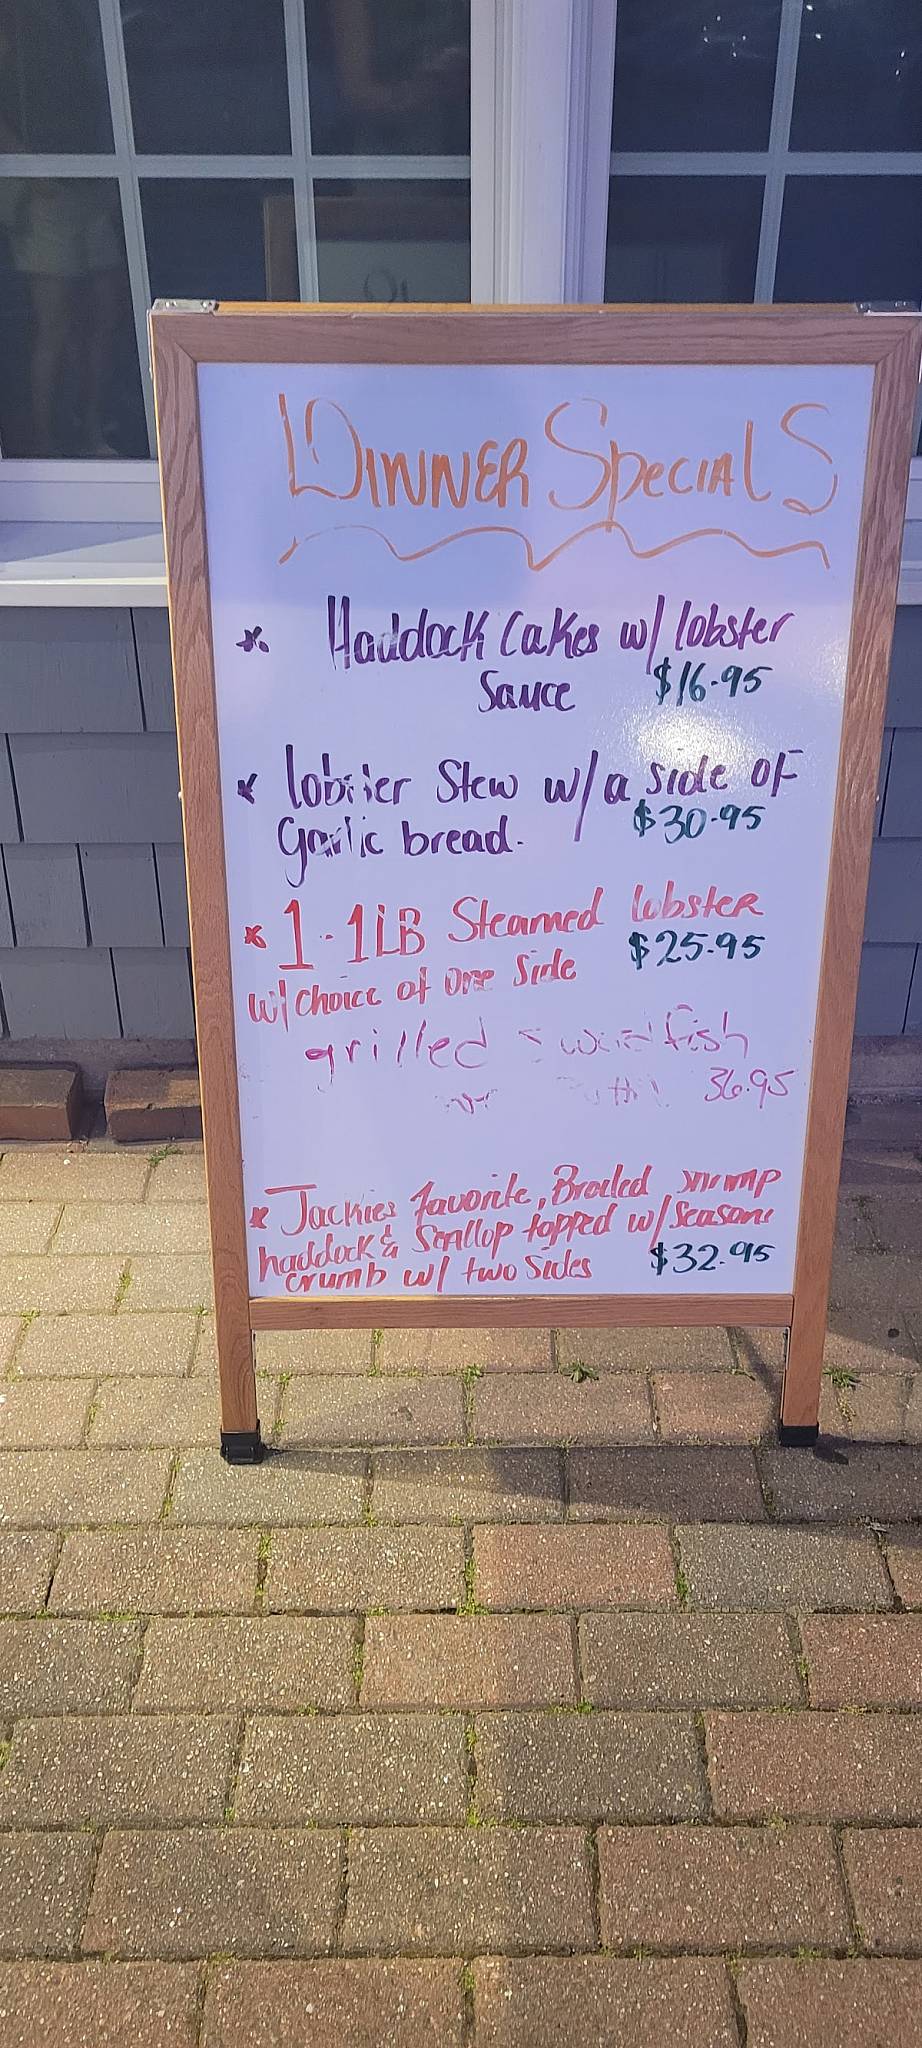 Dinner Specials
* Haddock Cakes w/ lobster
Sauce $16.95
* lobster Stew w/ a side of
garlic bread. $30.95
* 1-1LB Steamed lobster
w/ choice of one Side $25.95
grilled swordfish
36.95
* Jackies favorite, Broiled shrimp
haddock & Scallop topped w/ Season
crumb w/ two Sides $32.95